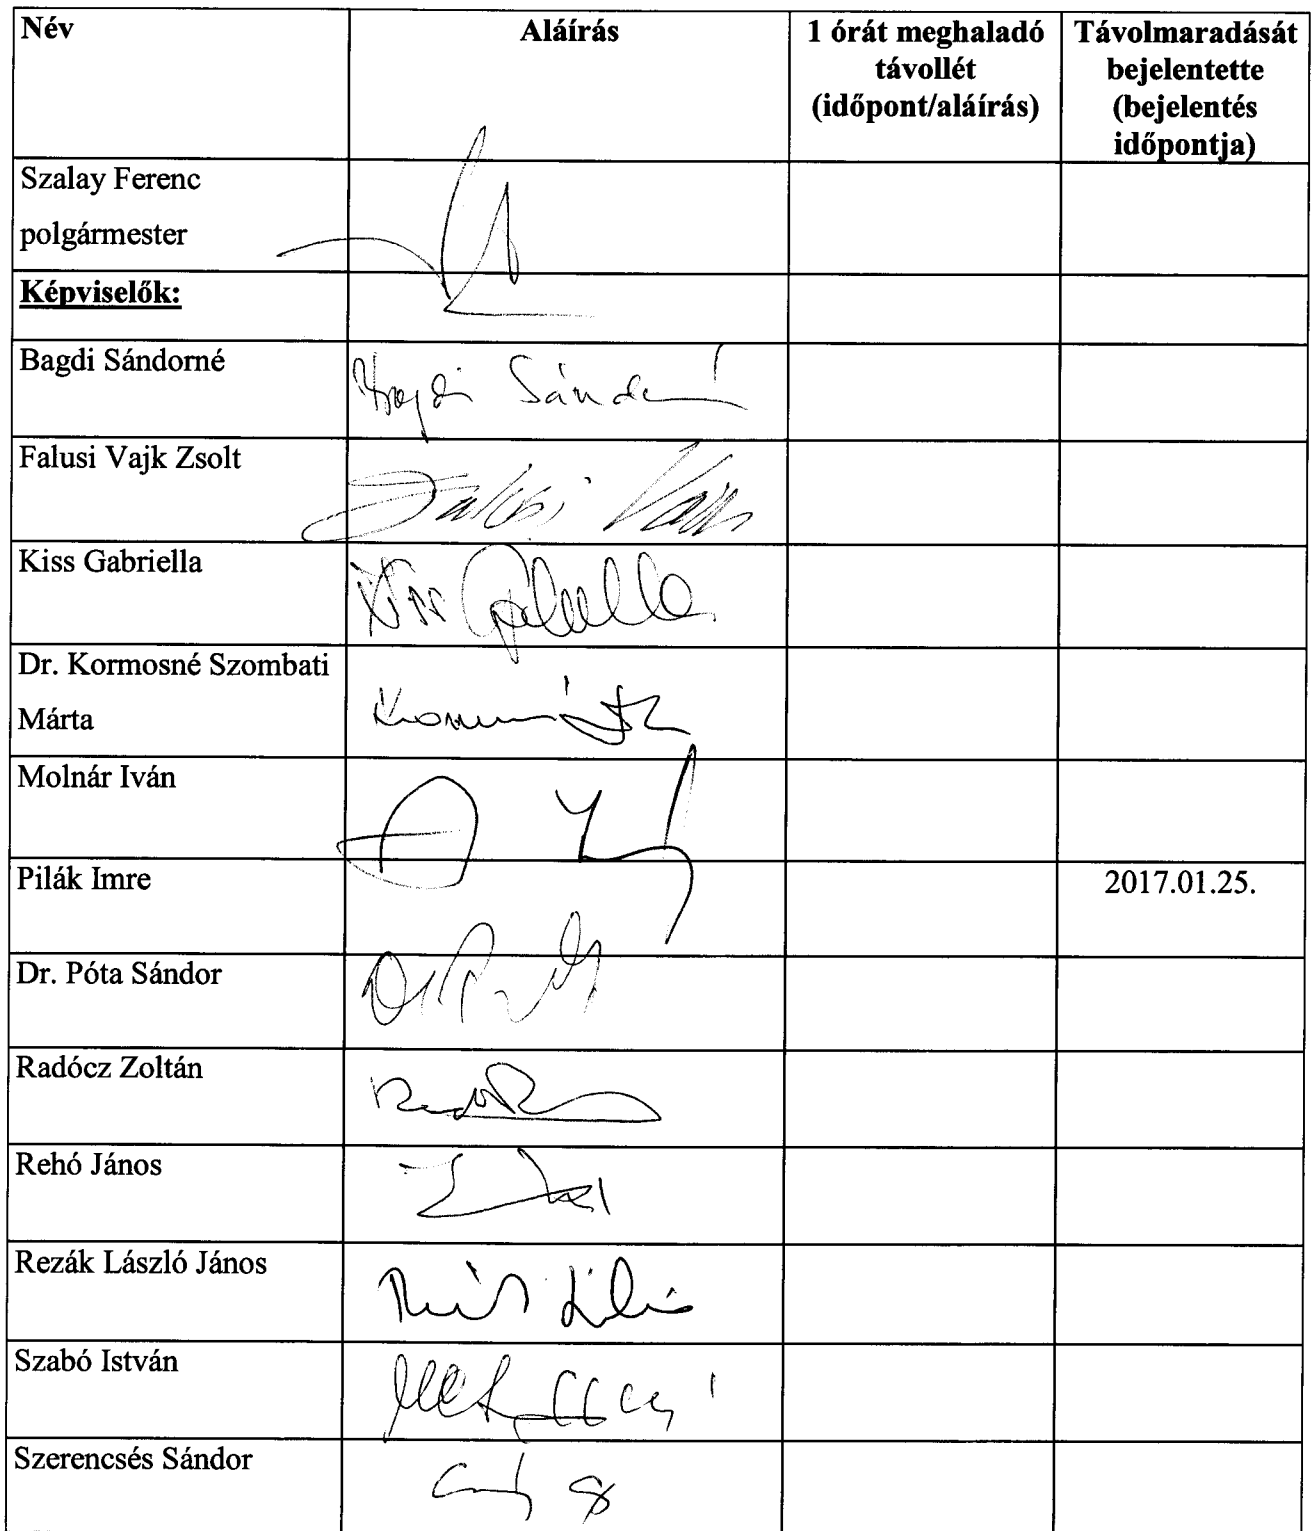 Név Aláírás 1 órát meghaladó Távolmaradását
távollét bejelentette
(időpont/aláírás) (bejelentés
időpontja)
Szalay Ferenc
polgármester
Képviselők:
Bagdi Sándorné
Bagdi Sándorné
Falusi Vajk Zsolt
Falusi Vajk
Kiss Gabriella
Kiss Gabriella
Dr. Kormosné Szombati
Márta
Molnár Iván
Pilák Imre 2017.01.25.
Dr. Póta Sándor
Radócz Zoltán
Rehó János
Rezák László János
Szabó István
Szerencsés Sándor